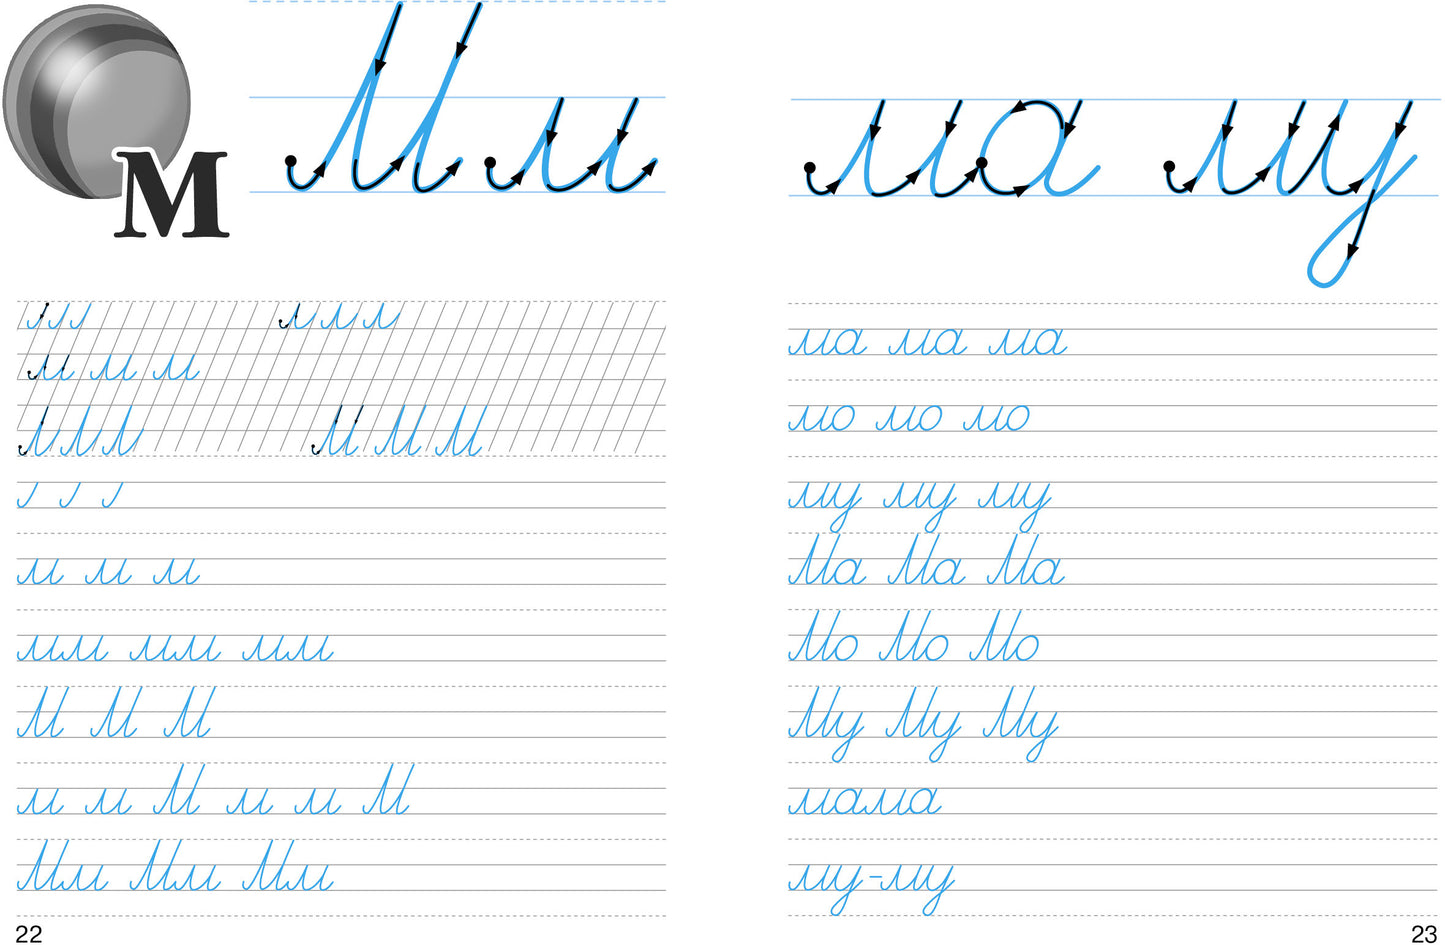 М
М м
м м м
М М М
м м м
мм мм мм
М М М
м м М м м М
Мм Мм Мм
22
ма му
ма ма ма
мо мо мо
му му му
Ма Ма Ма
Мо Мо Мо
Му Му Му
мама
му-му
23